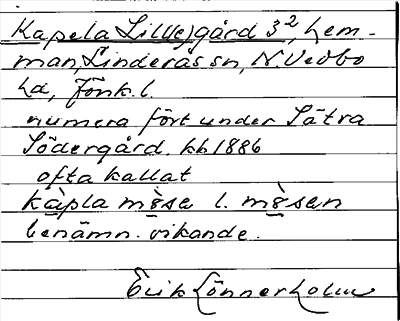 Kapela Lill(e)gård 3², hem-
man, Linderås sn, N. Vedbo
hd, Jönk. l.
numera fört under Sätra
Södergård. kb 1886
ofta kallat
kàpla mɞ̀se l. mɞ̀sen
benämn. vikande.
Erik Lönnerholm